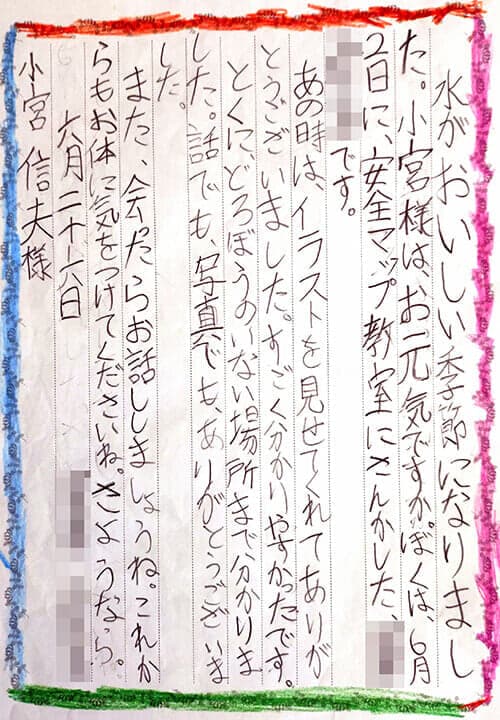 水がおいしい季節になりまし
た。小宮様は、お元気ですか。ぼくは、6月
2日に、安全マップ教室にさんかした、
です。
あの時は、イラストを見せてくれてありが
とうございました。すごく分かりやすかったです。
とくに、どろぼうのいない場所まで分かりま
した。話でも、写真でも、ありがとうございま
した。
また、会ったらお話ししましょうね。これか
らもお体に気をつけてくださいね。さようなら。
六月二十六日
小宮 信夫様